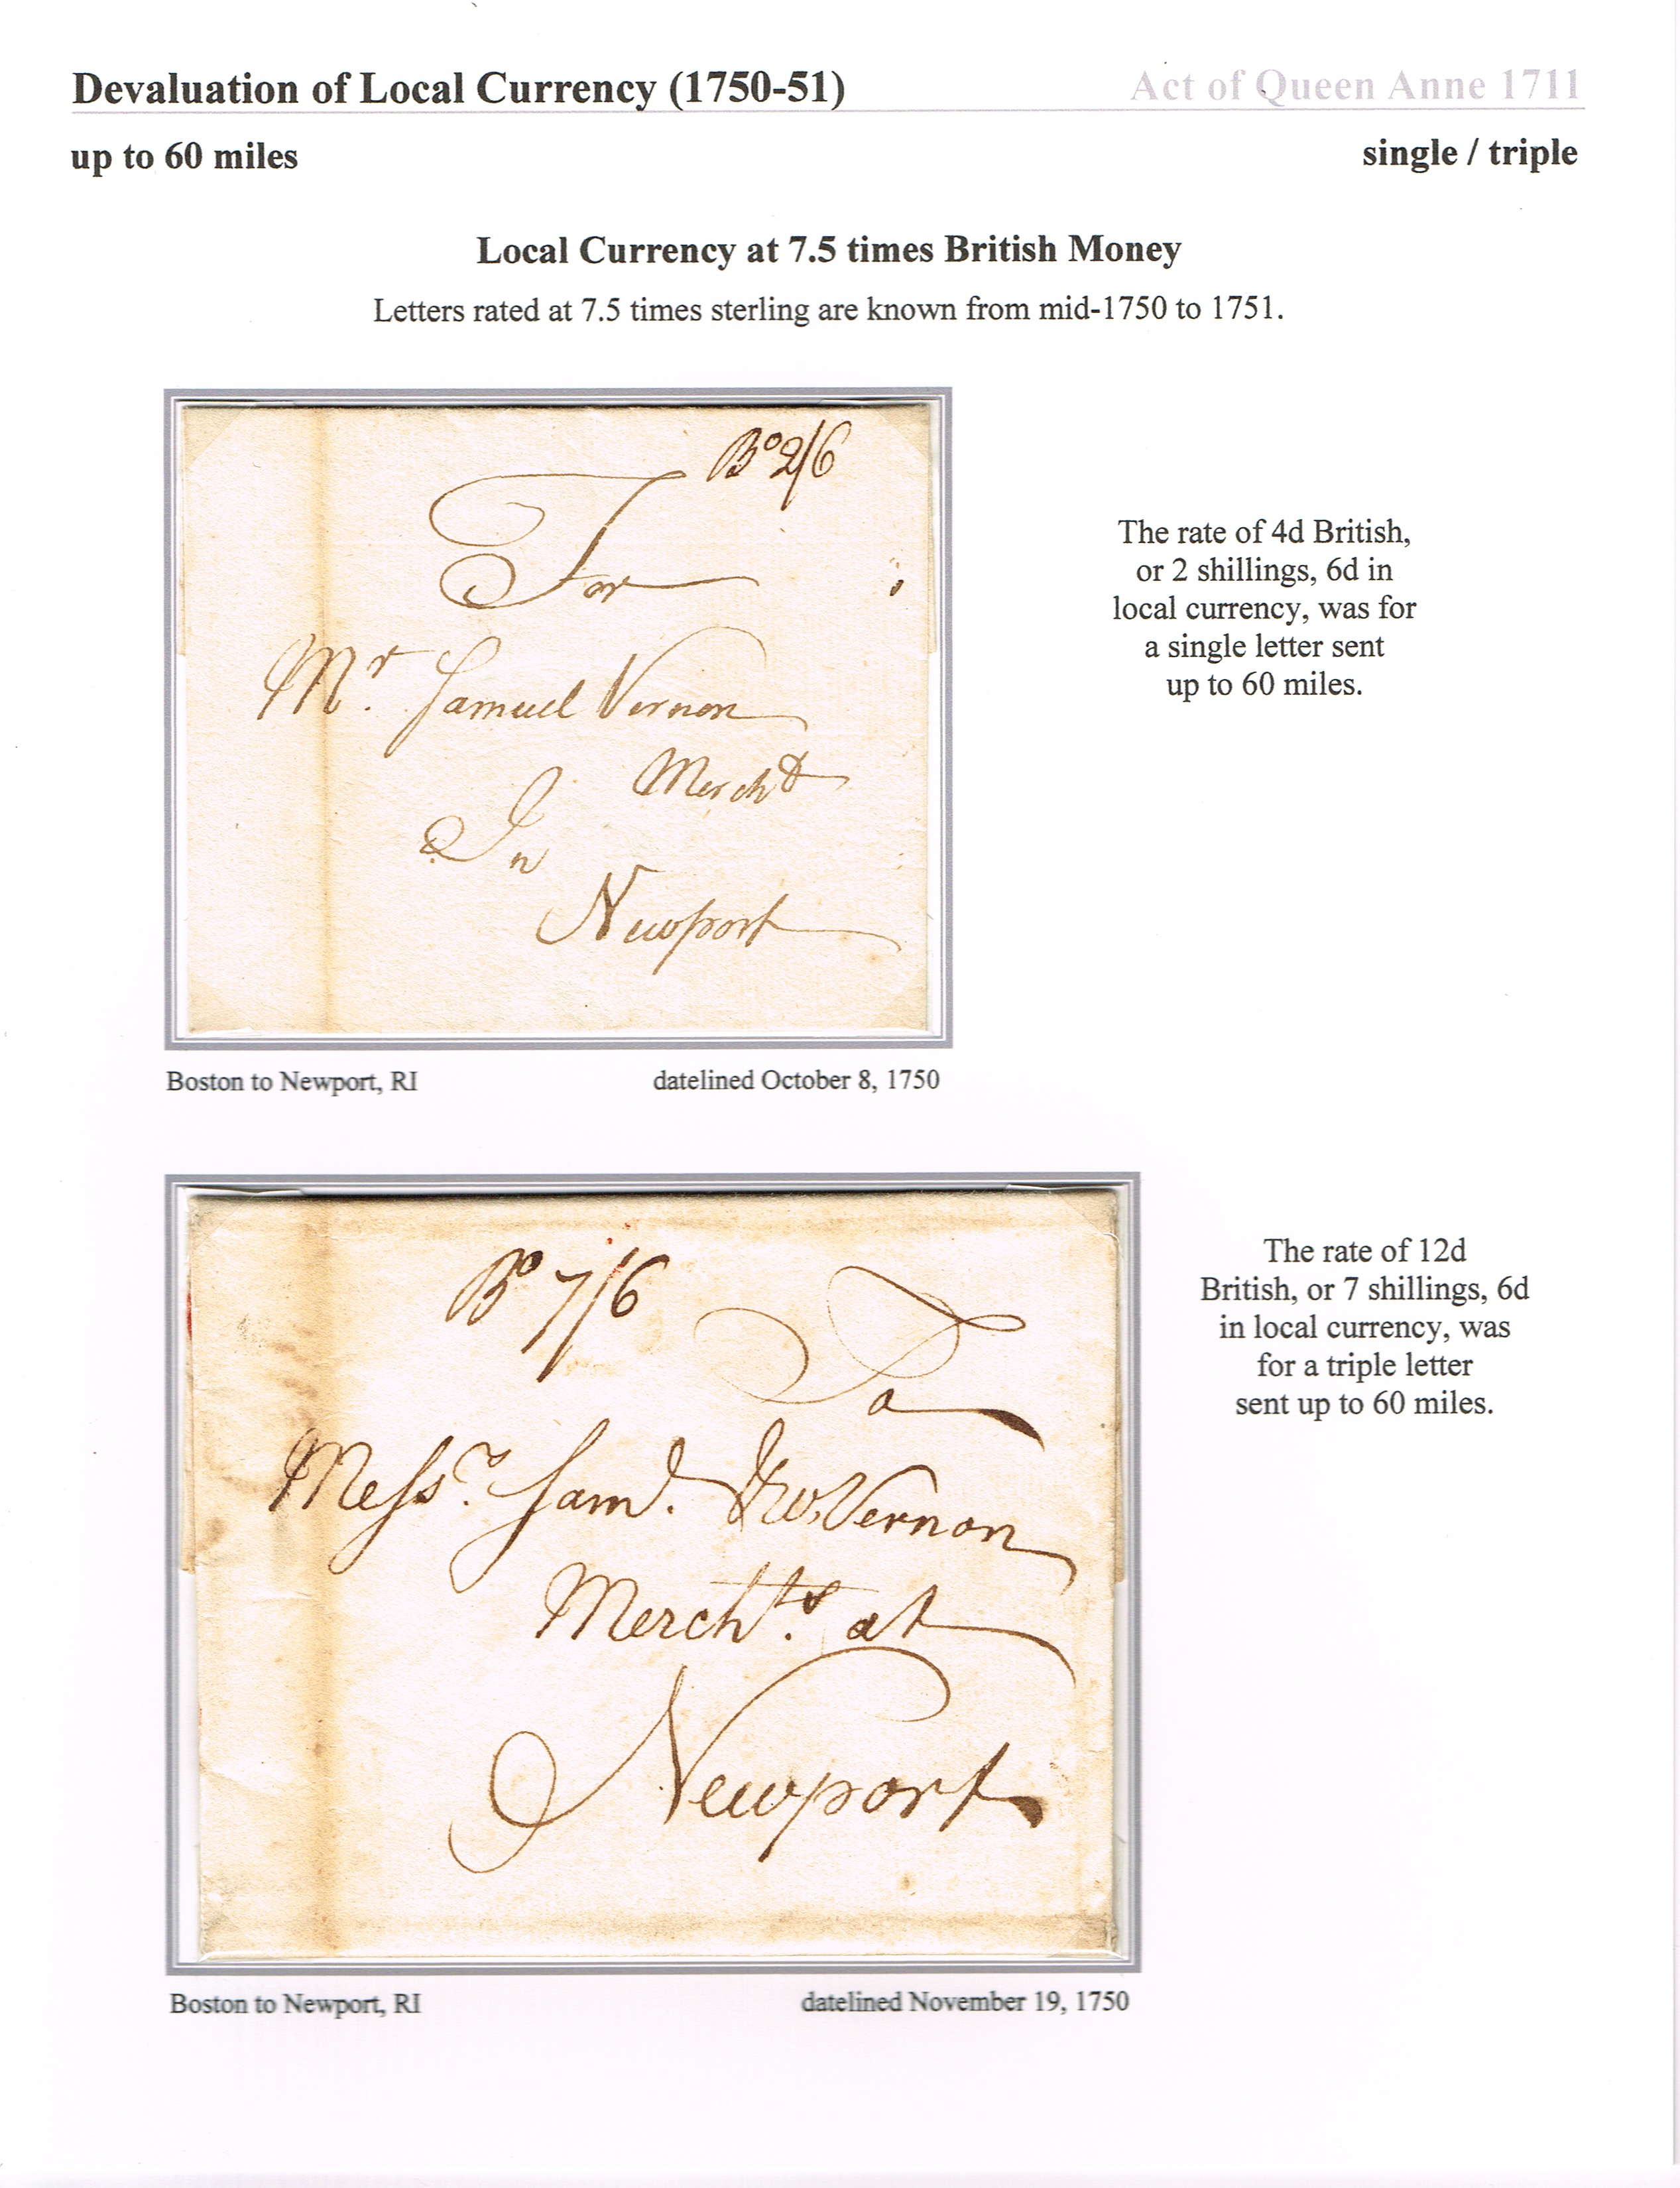 Devaluation of Local Currency (1750-51)
Act of Queen Anne 1711
up to 60 miles
single / triple
Local Currency at 7.5 times British Money
Letters rated at 7.5 times sterling are known from mid-1750 to 1751.
Bº 2/6
For
Mr. Samuel Vernon
Mercht
In
Newport
The rate of 4d British,
or 2 shillings, 6d in
local currency, was for
a single letter sent
up to 60 miles.
Boston to Newport, RI
datelined October 8, 1750
Bº 7/6
To
Messrs. Saml. & Wm Vernon
Merchts. at
Newport
The rate of 12d
British, or 7 shillings, 6d
in local currency, was
for a triple letter
sent up to 60 miles.
Boston to Newport, RI
datelined November 19, 1750